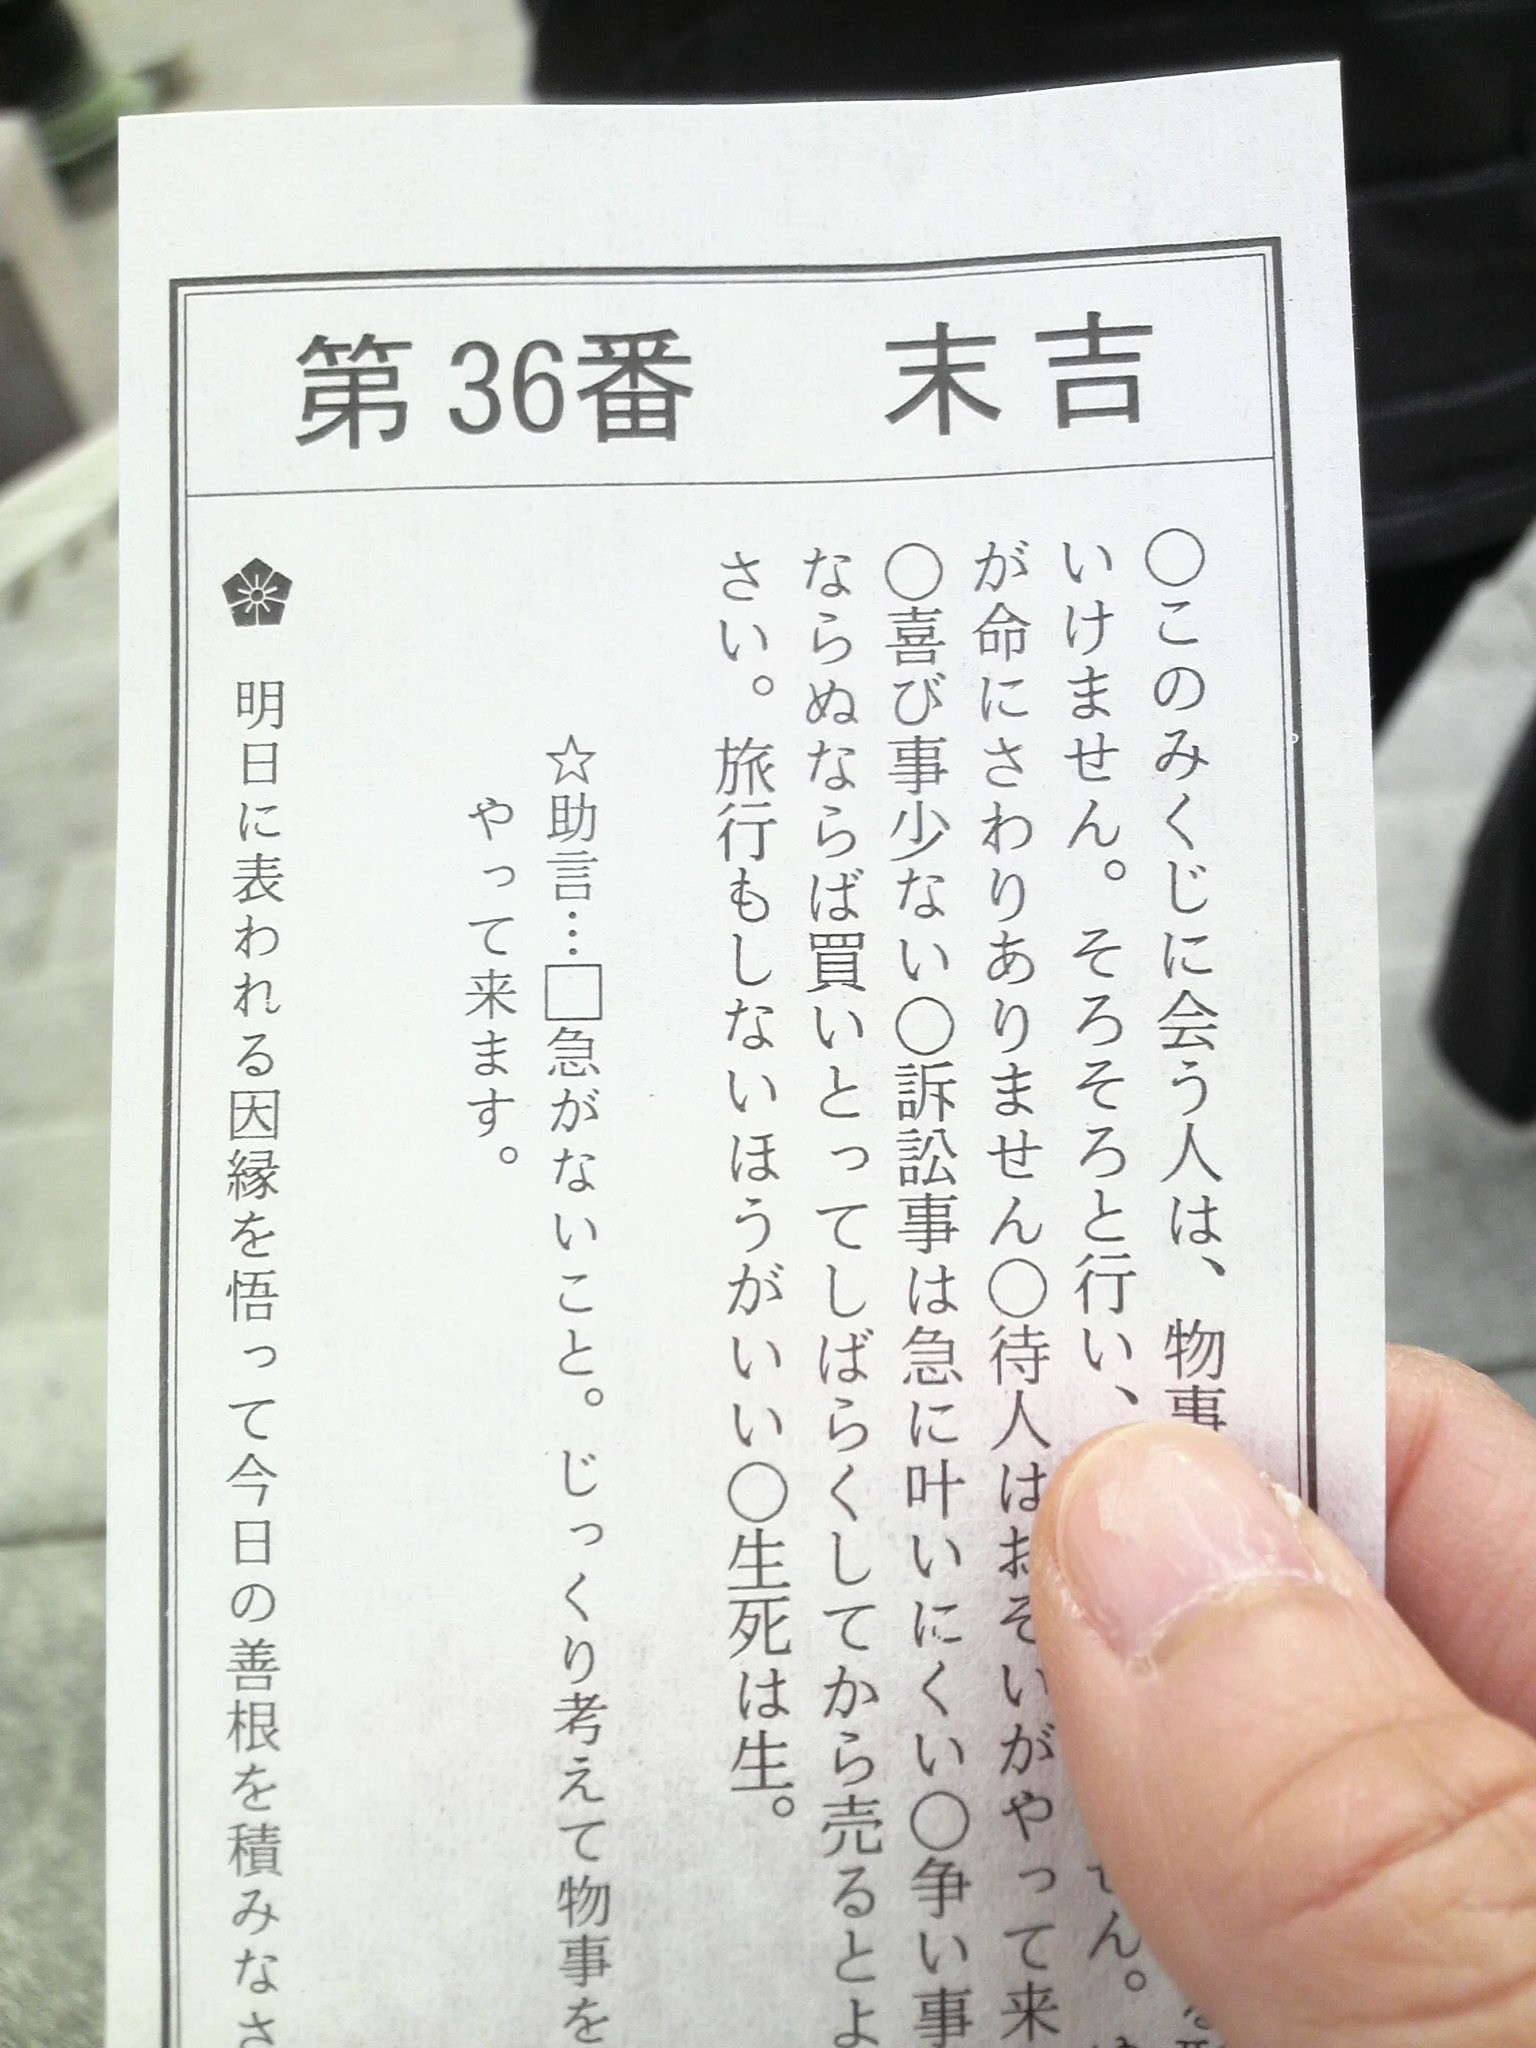 第36番 末吉
○このみくじに会う人は、物事
いけません。そろそろと行い、 せん。
が命にさわりありません○待人はおそいがやって来
○喜び事少ない○訴訟事は急に叶いにくい○争い事
ならぬならば買いとってしばらくしてから売るとよ
さい。旅行もしないほうがいい○生死は生。
☆助言…□急がないこと。じっくり考えて物事を
やって来ます。
明日に表われる因縁を悟って今日の善根を積みなさ